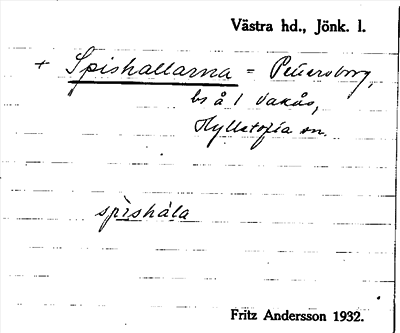 Västra hd., Jönk. l.
+ Spishallarna = Petersborg,
bs å 1 Vakås,
Hylletofta sn.
spishála
Fritz Andersson 1932.